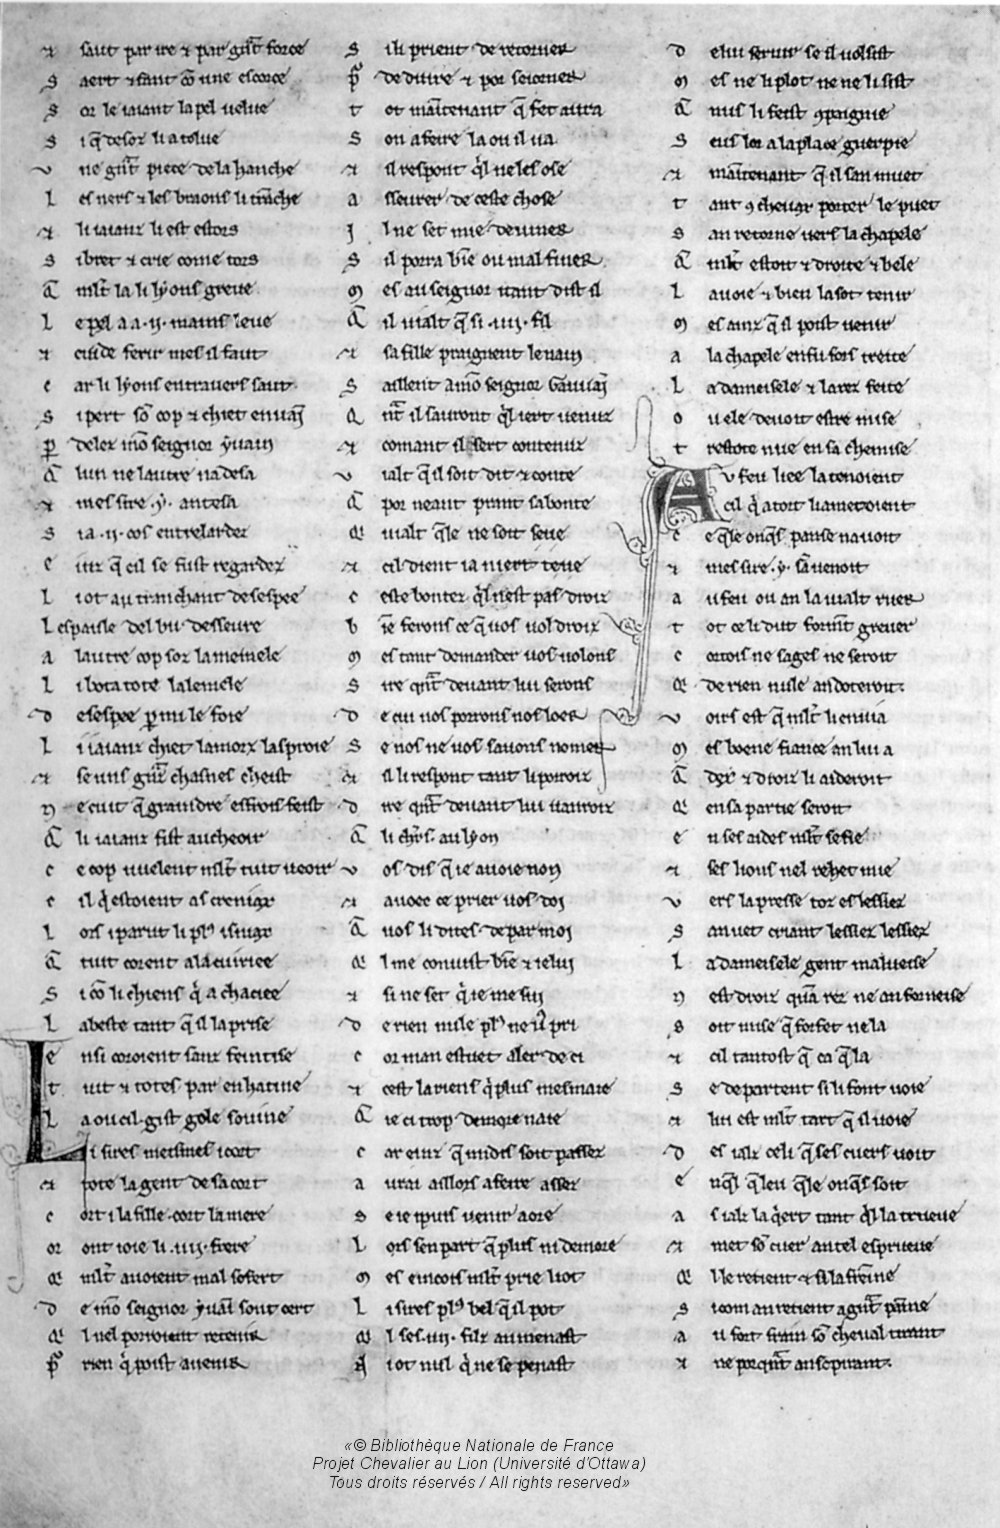 & saut par ire & par grãt force
S aert & fant cõ une escorce
S or le iaiant la pel velue
S i q̃ desor li a tolue
V ne grãt piece de la hanche
L es ners & les braons li trãche
& li iaianz li est estors
S i bret & crie come tors
Q̃ mlt la li lyons greve
L e pel a a .ii. mains leve
& cuide ferir mes il faut
C ar li lyons en travers saut
S i pert sõ cop & chiet en vaĩ
P delez mõ seignor yvain
Q̃ l'un ne lautre n adesa
& mes sire .y. antesa
S i a .ii. cos entrelardez
E inz q̃ cil se fust regardez
L i ot au tranchant de sespee
L espaule del bu dessevree
A lautre cop soz la memele
L i bota tote la lemele
D e sespee p mi le foie
L i iaianz chiet la morz lasproie
& se uns grãz chasnes cheist
N e cuit q̃ graindre esfrois feist
Q̃ li iaianz fist au cheoir
C e cop vuelent mlt tuit veoir
C il q̃ estoient as creniax
L ors i parut li plus isniax
Q̃ tuit corent a la cuiriee
S i cõ li chiens q̃ a chaciee
L a beste tant q̃ il la prise
E nsi coroient sanz feintise
T uit & totes par enhatine
L a ou cil gist gole sovine
L i sires meismes i cort
& tote la gent de sa cort
C ort i la fille cort la mere
Or ont ioie li .iiii. frere
Q mlt avoient mal sofert
D e mõ seignor yvaĩ sont cert
Q l nel porroient retenir
P rien q̃ poist avenir
S i li prient de retorner
P deduire & por seiorner
T ot maĩtenant q̃ fet avra
S on afeire la ou il va
& il respont ql ne les ose
A sseurer de ceste chose
I l ne set mie deviner
S il porra biẽ ou mal finer
M es au seignor itant dist il
Q̃ il vialt q̃ si .iiii. fil
& sa fille praignent le nain
S aillent a mõ seignor Gauvaĩ
Q nt il savront ql iert venuz
& comant il sert contenuz
V ialt q̃ il soit dit & conte
Q̃ por neant prant sa bonte
Q vialt qle ne soit seue
& cil dient ia niert teue
C este bontez ql nest pas droiz
B iẽ ferons ce q̃ vos voldroiz
M es tant demander vos volons
S ire qnt devant lui serons
D e cui nos porrons nos loer
S e nos ne vos savons nomer
& il li respont tant li porroiz
D ire qnt devant lui vanroiz
Q̃ li chrs au lyon
V os dis q̃ ie avoie non
& avoec ce prier vos doi
Q̃ vos li dites de par moi
Q l me conuist biẽ & ie lui
& si ne set q̃ ie me sui
D e rien nule pl ne vos pri
C or m an estuet aler de ci
& cest la riens q̃ plus mesmaie
Q̃ ie ci trop demore naie
C ar einz q̃ midis soit passez
A vrai aillors afeire assez
S e ie i puis venir a ore
L ors sen part q̃ plus ni demore
M es eincois mlt prie lot
L i sires pl bel q̃ il pot
Q l ses .iiii. filz an menast
N i ot nul q̃ ne se penast
D e lui servir se il volsist
M es ne li plot ne ne li sist
Q̃ nus li feist cpaignie
S eus lor a la place guerpie
& maĩtenant q̃ il san muet
T ant c chevax porter le puet
S an retorne vers la chapele
Q̃ mlt estoit & droite & bele
L a voie & bien la sot tenir
M es ainz q̃ il poist venir
A la chapele en fu fors treite
L a dameisele & la rez feite
O u ele devoit estre mise
T restote nue en sa chemise
A u feu liee la tenoient
Cil q̃ a tort li ametoient
C e qle onqs panse navoit
& mes sire .y. san venoit
A u feu ou an la vialt ruer
T ot ce li dut formt grever
C ortois ne sages ne seroit
Q de rien nule an doteroit
V oirs est q̃ mlt li enuia
M es boene fiance an lui a
Q̃ dex & droiz li aideroit
Q en sa partie seroit
E n ses aides mlt se fie
& ses lions nel rehet mie
V ers la presse toz es lessiez
S an vet criant lessiez lessiez
L a dameisele gent malveise
N est droiz quan rez ne an forneise
S oit mise q̃ forfet ne la
& cil tantost q̃ ca q̃ la
S e departent si li font voie
& lui est mlt tart q̃ il voie
D es ialz celi q̃ ses cuers voit
E n ql q̃ leu qle onqs soit
A s ialz la qert tant ql la trueve
& met sõ cuer an tel esprueve
Q l le retient & si la freine
S i com an retient a grant peine
A u fort frain sõ cheval tirant
& ne porqnt an sopirant
«© Bibliothèque Nationale de France
Projet Chevalier au Lion (Université d'Ottawa)
Tous droits réservés / All rights reserved»